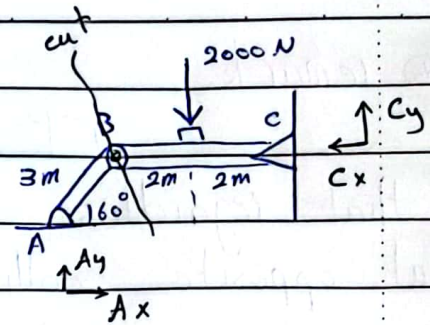 cut
2000 N
B
C
Cy
3m
2m
2m
Cx
160°
A
Ay
Ax